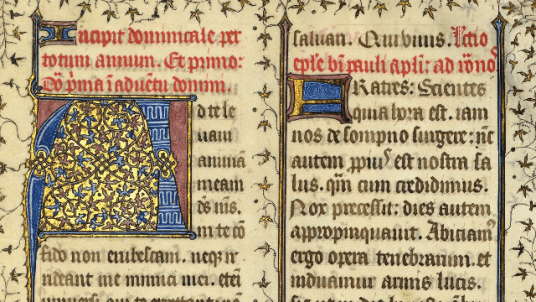 Incipit dominicale per
totum annum. Et primo:
Dõ p̃ma ĩ aduẽtu domini.
d te le
uaui
animã
meam
d̃s m̃s.
in te cõ
fido non erubescam. neq; ir
rideant me inimici mei. eteni
uniuersi qui te expectant non
saluan. Quibus. Lectio
ep̃le bt̃i pauli apl̃i: ad rõnos
Ratres: Scientes
quia hora est. iam
nos de sompno surgere: nũc
autem ꝓpiꝰ est nostra sa
lus. qm̃ cum credidimus.
Nox precessit: dies autem
appropinquauit. Abiciamꝰ
ergo opera tenebrarum. et
induamur armis lucis.
sicut in die